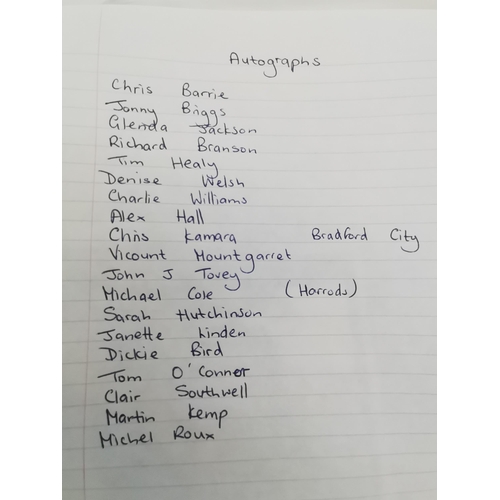 Autographs
Chris Barrie
Jonny Briggs
Glenda Jackson
Richard Branson
Tim Healy
Denise Welsh
Charlie Williams
Alex Hall
Chris Kamara Bradford City
Vicount Mountgarret
John J Tovey
Michael Cole (Harrods)
Sarah Hutchinson
Janette Linden
Dickie Bird
Tom O'Conner
Clair Southwell
Martin Kemp
Michel Roux